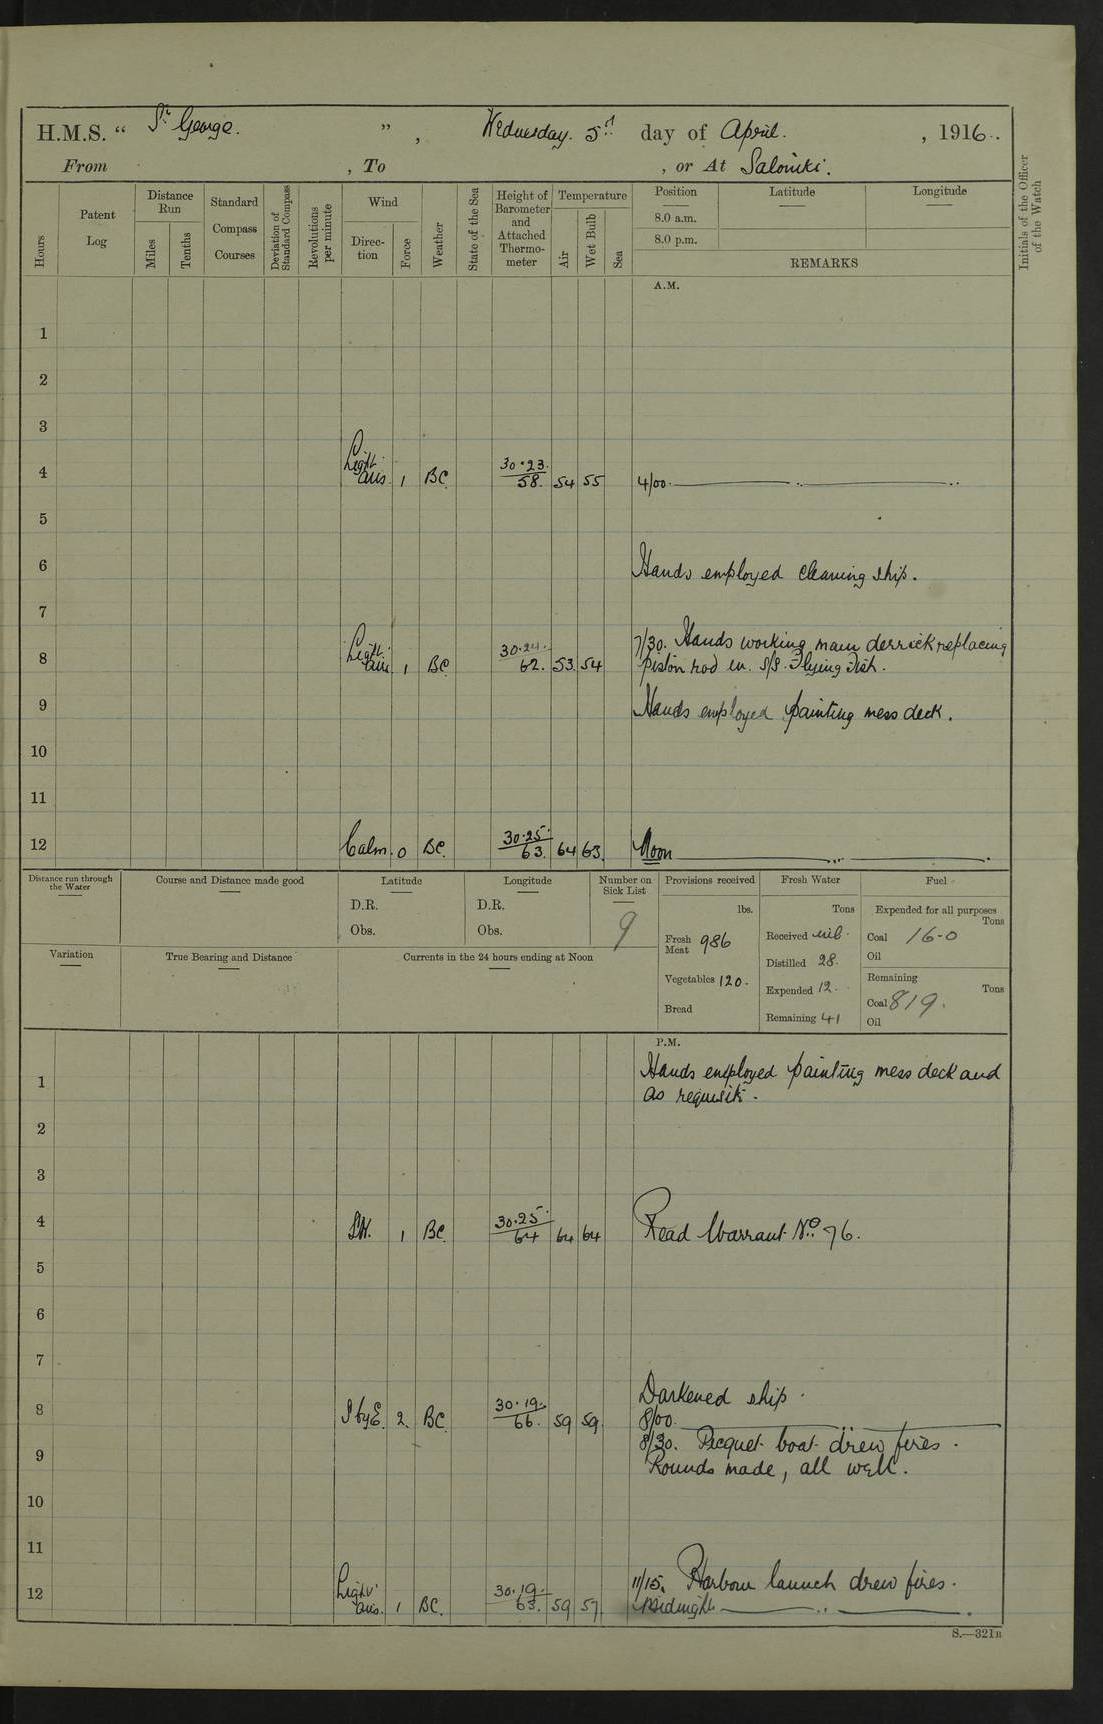 H.M.S. " St George. " , Wednesday. 5th day of April. , 1916.
From , To , or At Salonika.
Hours
Patent Log
Distance Run
Miles
Tenths
Standard Compass Courses
Deviation of Standard Compass
Revolutions per minute
Wind
Direction
Force
Weather
State of the Sea
Height of Barometer and Attached Thermometer
Temperature
Air
Wet Bulb
Sea
Position
8.0 a.m.
8.0 p.m.
Latitude
Longitude
REMARKS
Initials of the Officer of the Watch
A.M.
1
2
3
4 Light airs. 1 BC 30.23. 58. 54 55 4/00.
5
6 Hands employed cleaning ship.
7
7/30. Hands working main derrick replacing
8 Light airs. 1 BC 30.24. 62. 53. 54 piston rod in S/S. Flying Fish.
9 Hands employed painting mess deck.
10
11
12 Calm. 0 BC. 30.25. 63. 64 63. Noon
Distance run through the Water
Course and Distance made good
Latitude
D.R.
Obs.
Longitude
D.R.
Obs.
Number on Sick List
9
Provisions received
lbs.
Fresh Meat 986
Vegetables 120.
Bread
Fresh Water
Tons
Received nil.
Distilled 28.
Expended 12.
Remaining 41
Fuel
Expended for all purposes
Tons
Coal 16-0
Oil
Remaining
Tons
Coal 819.
Oil
Variation
True Bearing and Distance
Currents in the 24 hours ending at Noon
P.M.
1 Hands employed painting mess deck and
as requisite.
2
3
4 1 BC. 30.25. 64 64 64 Read Warrant No. 76.
5
6
7
Darkened ship.
8 S by E. 2. BC. 30.19. 66. 59 59. 8/00.
8/30. Picquet boat drew fires.
9 Rounds made, all well.
10
11
11/15. Harbour launch drew fires.
12 Light airs. 1 BC. 30.19. 63. 59 57. Midnight
S.—321B